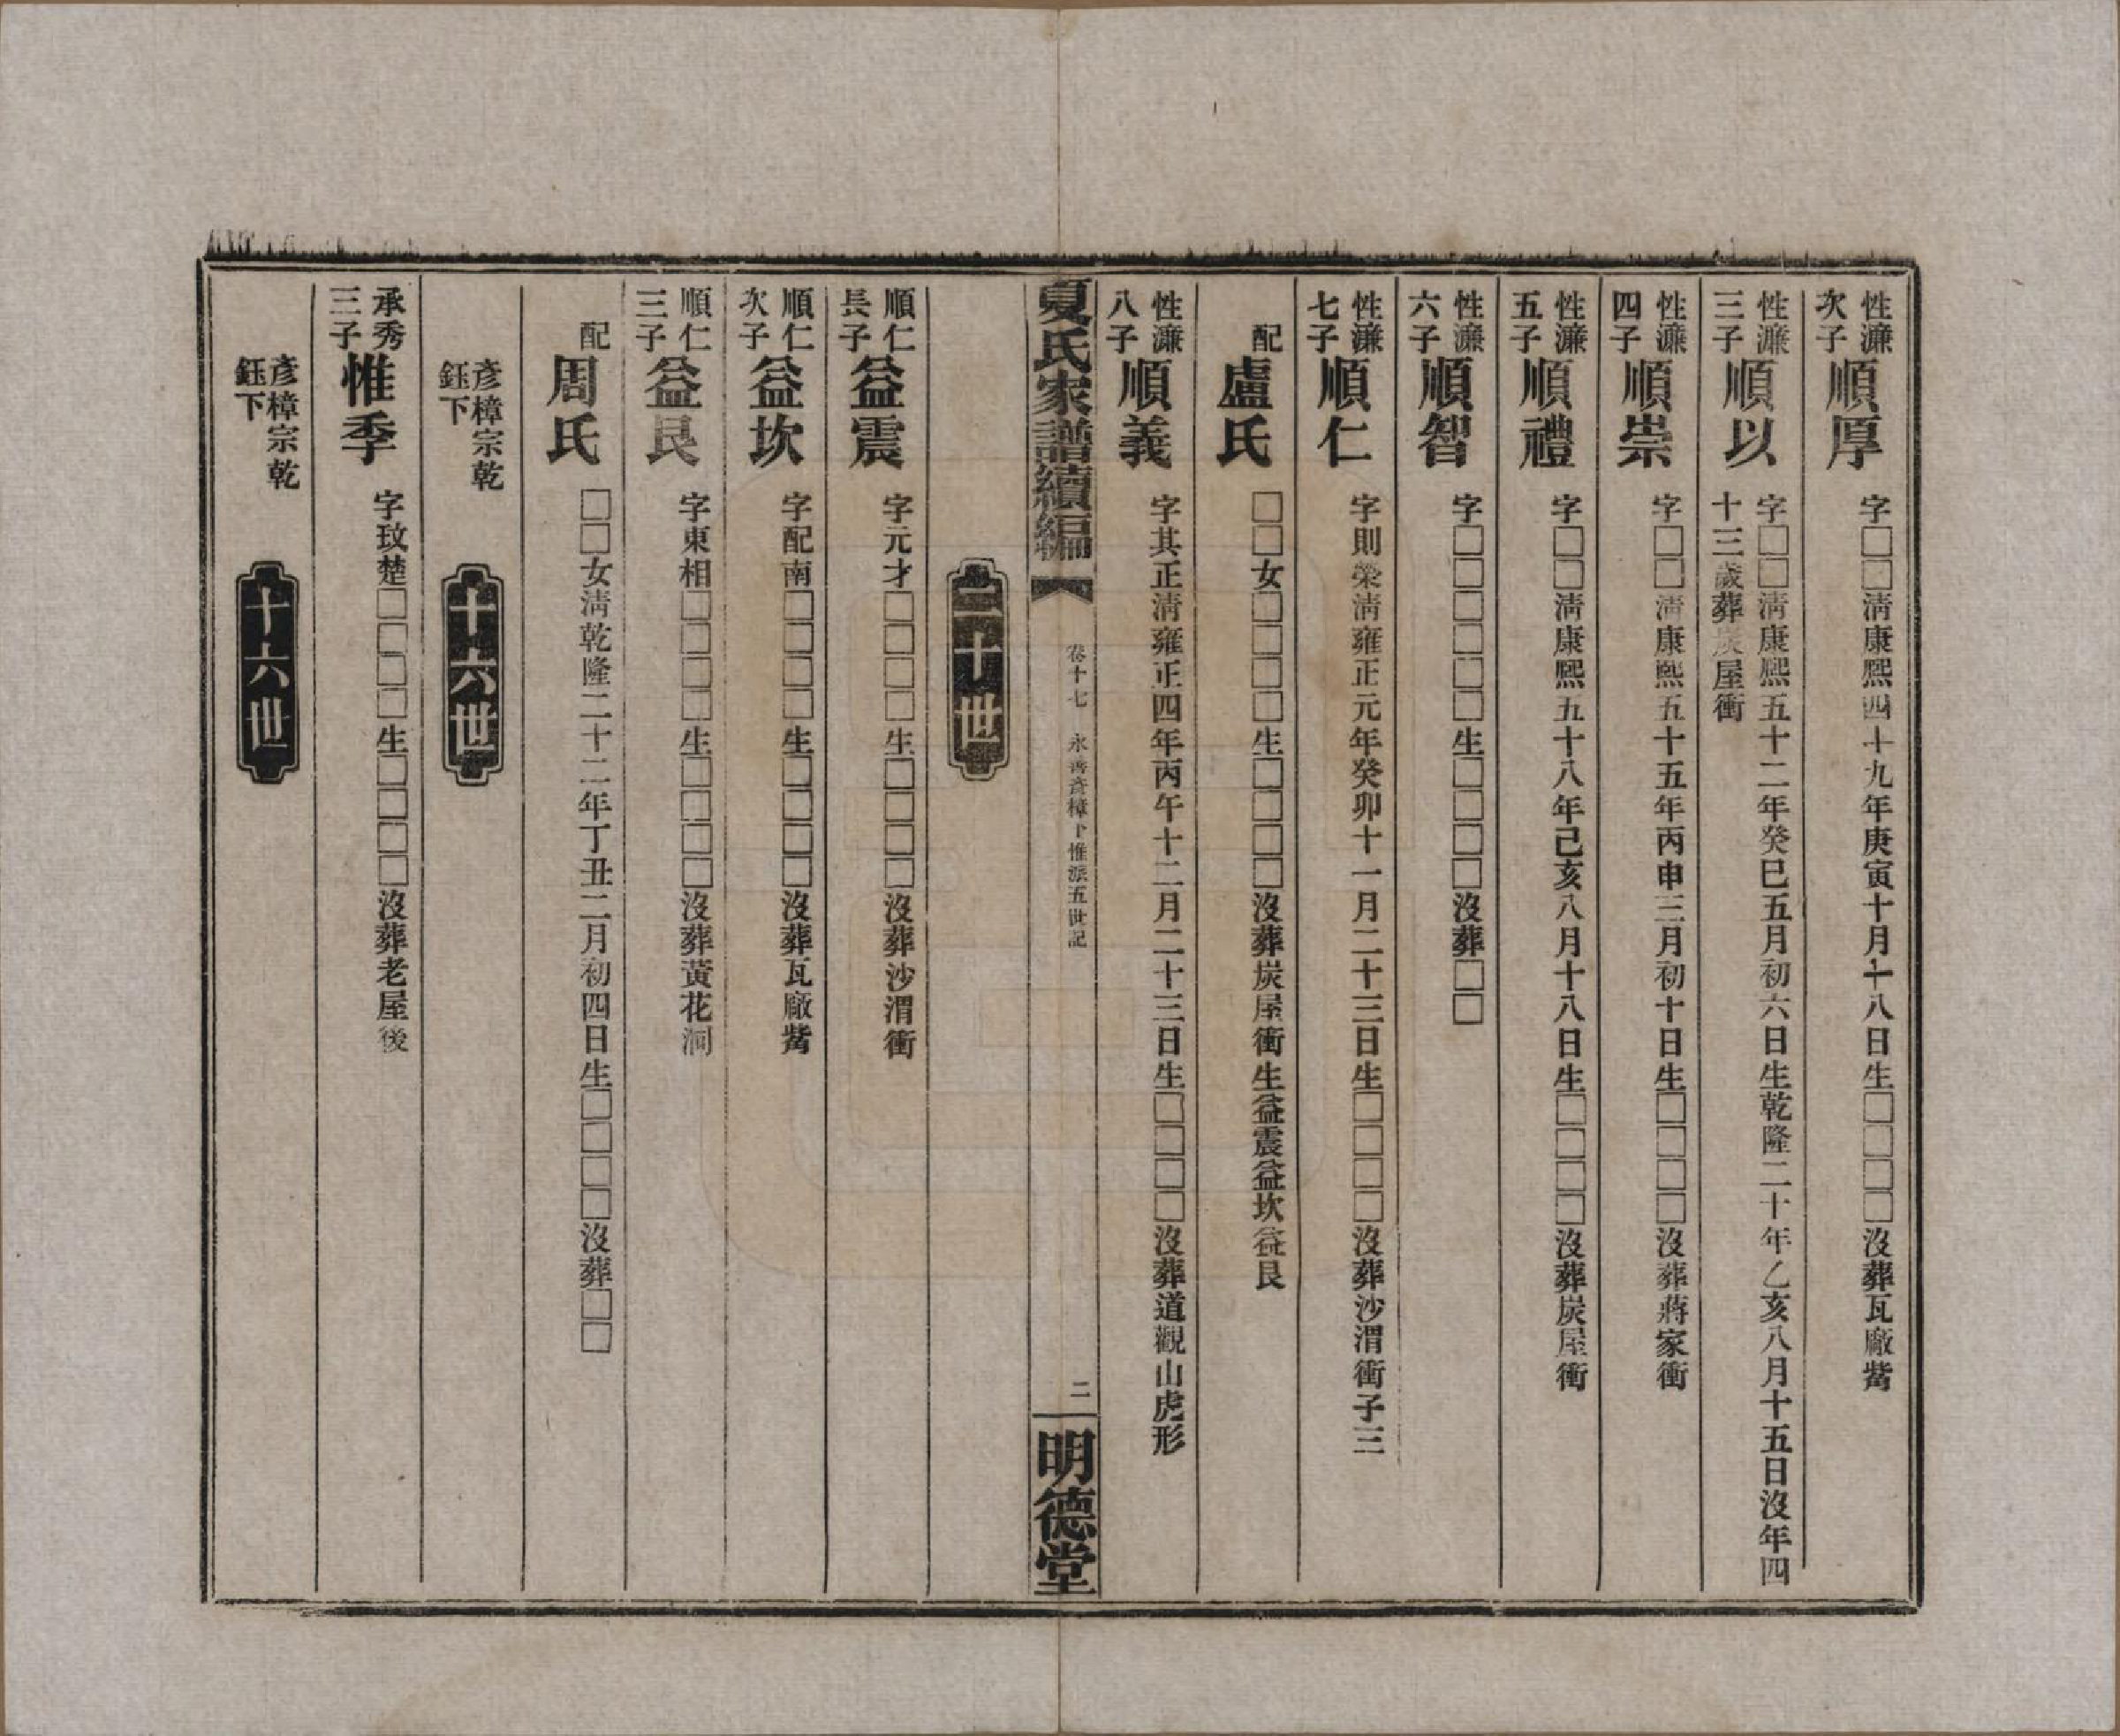 性濂次子順厚字□□淸康熙四十九年庚寅十月十八日生□□□□沒葬瓦廠觜
性濂三子順以字□□淸康熙五十二年癸巳五月初六日生乾隆二十年乙亥八月十五日沒年四
十三歲葬炭屋衝
性濂四子順崇字□□淸康熙五十五年丙申三月初十日生□□□□沒葬蔣家衝
性濂五子順禮字□□淸康熙五十八年己亥八月十八日生□□□□沒葬炭屋衝
性濂六子順智字□□□□□□生□□□□沒葬□□
性濂七子順仁字則榮淸雍正元年癸卯十一月二十三日生□□□□沒葬沙渭衝子三
配盧氏□□女□□□□生□□□□沒葬炭屋衝生益震益坎益艮
性濂八子順義字其正淸雍正四年丙午十二月二十三日生□□□□沒葬道觀山虎形
夏氏家譜續編
卷十七 永 彥樟下惟派五世記
二
明德堂
二十世
順仁長子益震字元才□□□□生□□□□沒葬沙渭衝
順仁次子益坎字配南□□□□生□□□□沒葬瓦廠觜
順仁三子益艮字東相□□□□生□□□□沒葬黃花洞
配周氏□□女淸乾隆二十二年丁丑二月初四日生□□□□沒葬□□
彥樟宗乾鈺下
十六世
承秀三子惟季字玟楚□□□□生□□□□沒葬老屋後
彥樟宗乾鈺下
十六世